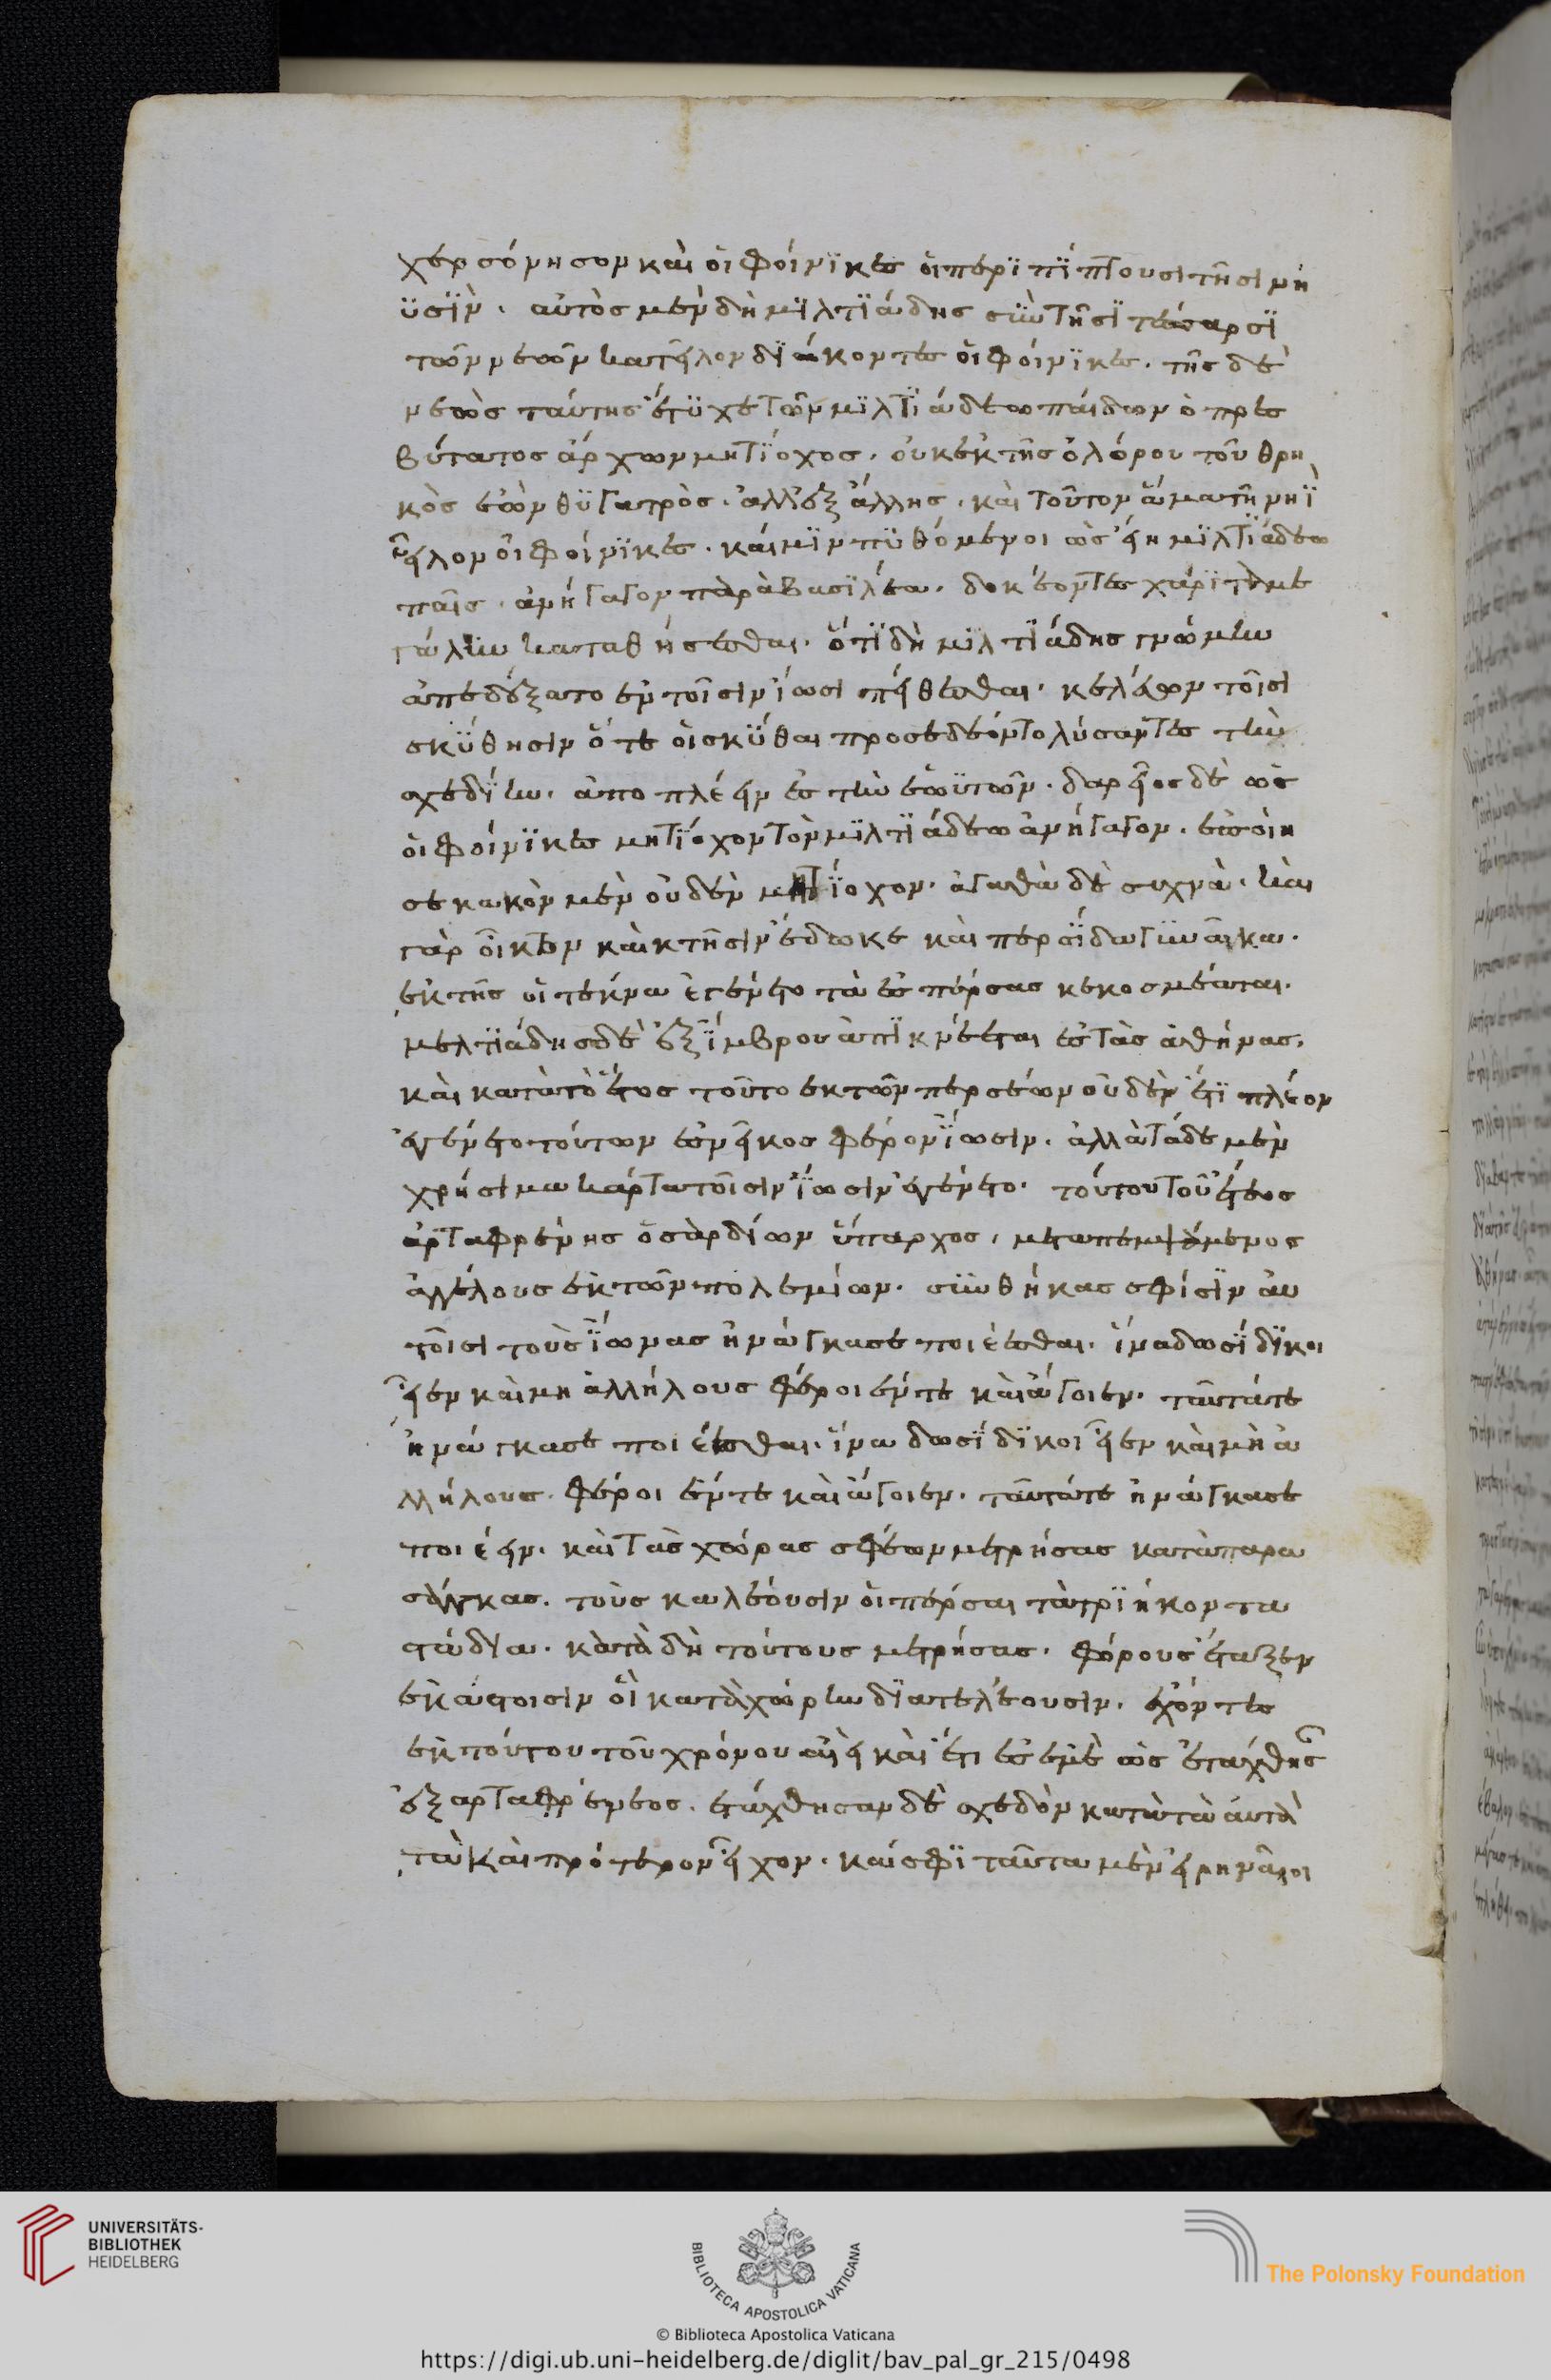 χερσόνησον καὶ οἱ φοίνϊκες οἱ περϊ πΐπτουσι τῆσι νη
ϋσΐν. αὐτὸς μὲν δὴ μϊλτϊάδης σὺν τῆσϊ τέσσαρσϊ
τῶν νεῶν κατεῖλον διώκοντες οἱ φοίνϊκες. τῆς δὲ
νεὼς ταύτης ἔτϋχε τῶν μϊλτϊάδεω παίδων ὁ πρεσ
βύτατος ἄρχων μητΐοχος. οὐκ ἐκ τῆς ὀλόρου τοῦ θρη
κὸς ἐὼν θϋγατρὸς. ἀλλ' ἐξ ἄλλης. καὶ τοῦτον ἅμα τῇ νηῒ
εἷλον οἱ φοίνϊκες. καί μϊν πϋθόμενοι ὡς εἴη μϊλτϊάδεω
παῖς. ἀνήγαγον παρὰ βασϊλέα. δοκέοντες χάρϊτα με
γάλην καταθήσεσθαι. ὅτϊ δὴ μϊλτϊάδης γνώμην
ἀπεδέξατο ἐν τοῖσιν ἴωσι πείθεσθαι. κελεύων τοῖσι
σκύθησιν ὅτε οἱ σκύθαι προσεδέοντο λύσαντες τὴν
σχεδΐην. ἀποπλέειν ἐς τὴν ἑωϋτῶν. δαρεῖος δὲ ὡς
οἱ φοίνϊκες μητΐοχον τὸν μϊλτϊάδεω ἀνήγαγον. ἐποίη
σε κακὸν μὲν οὐδὲν μητΐοχον. ἀγαθὰ δὲ συχνὰ. καὶ
γὰρ οἶκον καὶ κτῆσιν ἔδωκε καὶ περσΐδα γυναῖκα.
ἐκ τῆς οἱ τέκνα ἐγένετο τὰ ἐς πέρσας κεκοσμέαται.
μελτϊάδης δὲ ἐξ ΐμβρου ἀπϊκνέεται ἐς τὰς ἀθήνας.
καὶ κατὰ τὸ ἔτος τοῦτο ἐκ τῶν περσέων οὐδὲν ἔτϊ πλέον
ἐγένετο τούτων ἐς νεῖκος φέρον ΐωσιν. ἀλλὰ τάδε μὲν
χρήσιμα κάρτα τοῖσιν ΐωσιν ἐγένετο. τούτου τοῦ ἔτεος
ἀρταφρένης ὁ σαρδίων ὕπαρχος, μεταπεμψάμενος
ἀγγέλους ἐκ τῶν πολεμίων. συνθήκας σφίσϊν αὐ
τοῖσι τοὺς ΐωνας ἠνάγκασε ποιέεσθαι. ἵνα δωσΐδϊκοι
εἶεν καὶ μὴ ἀλλήλους φέροιέν τε καὶ ἄγοιεν. ταῦτά τε
ἠνάγκασε ποιέεσθαι. ἵνα δωσΐδϊκοι εἶεν καὶ μὴ ἀ
λλήλους. φέροιέν τε καὶ ἄγοιεν. ταῦτά τε ἠνάγκασε
ποιέειν. καὶ τὰς χώρας σφέων μετρήσας κατὰ παρα
σάγγας. τοὺς καλέουσιν οἱ πέρσαι τὰ τρϊήκοντα
στάδια. κατὰ δὴ τούτους μετρήσας. φόρους ἔταξεν
ἑκάστοισιν οἳ κατὰ χώρην διατελέουσιν. ἔχοντες
ἐκ τούτου τοῦ χρόνου αἰεὶ καὶ ἔτι ἐς ἐμὲ ὡς ἐτάχθησαν
ἐξ ἀρταφρένεος. ἐτάχθησαν δὲ σχεδὸν κατὰ τὰ αὐτὰ
τὰ καὶ πρότερον εἶχον. καί σφϊ ταῦτα μὲν εἰρηναῖοι
UNIVERSITÄTS-
BIBLIOTHEK
HEIDELBERG
BIBLIOTECA APOSTOLICA VATICANA
The Polonsky Foundation
© Biblioteca Apostolica Vaticana
https://digi.ub.uni-heidelberg.de/diglit/bav_pal_gr_215/0498